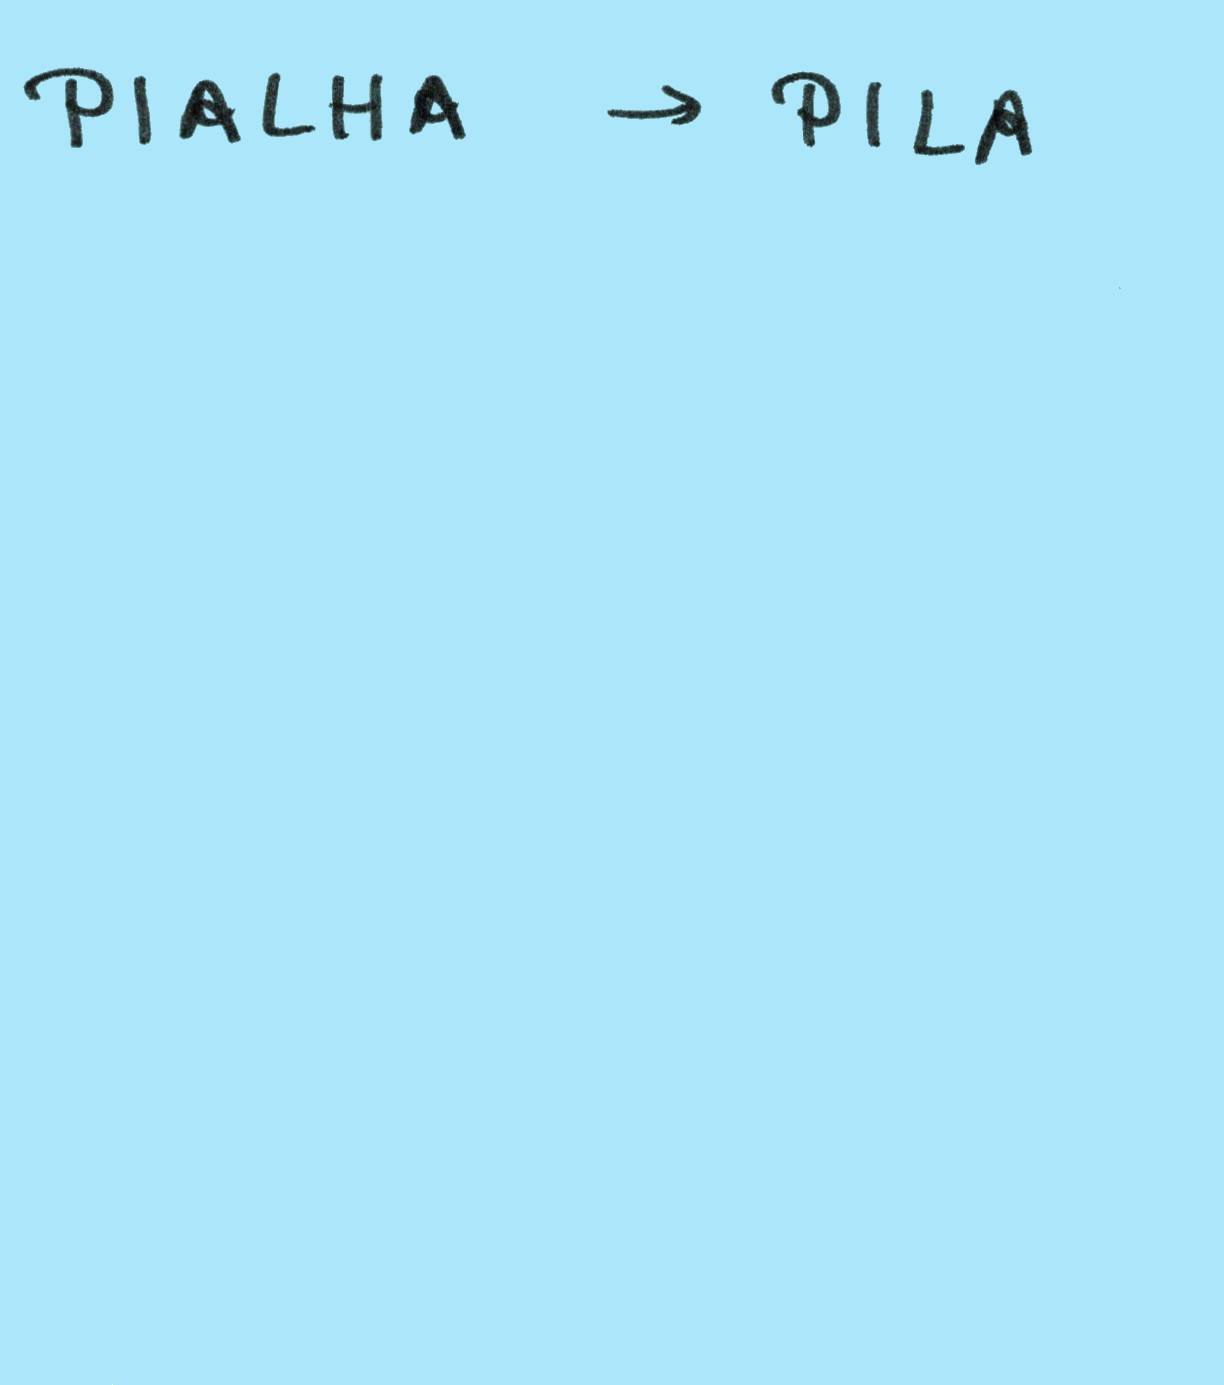 PIALHA → PILA